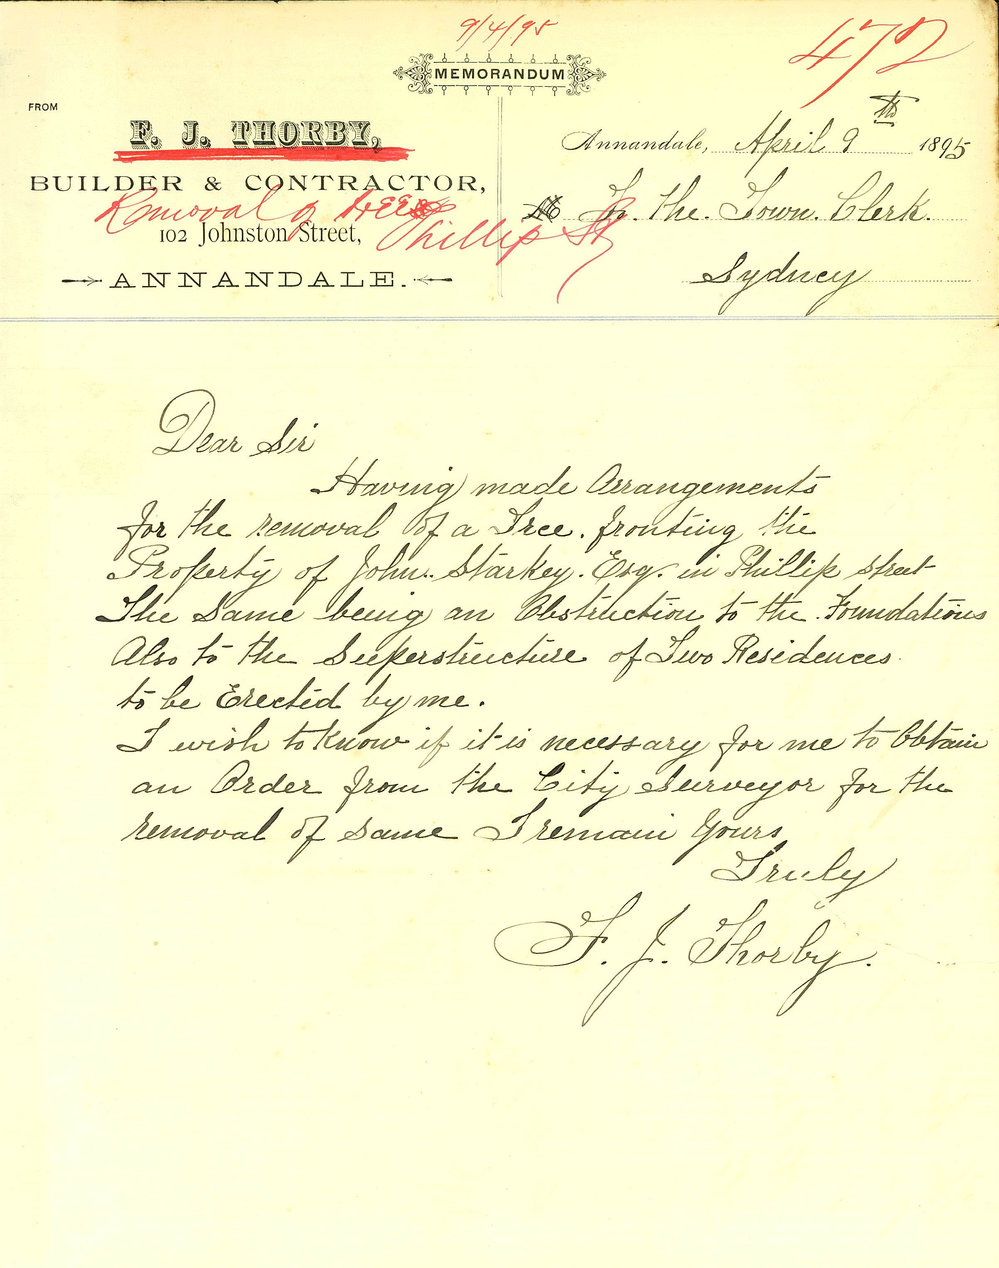 9/4/95
472
MEMORANDUM
FROM
F. J. THORBY,
BUILDER & CONTRACTOR,
Removal of tree
102 Johnston Street,
Phillip St
ANNANDALE.
Annandale, April 9th 1895
To. the. Town. Clerk.
Sydney
Dear Sir
Having made Arrangements
for the removal of a Tree. fronting the
Property of John. Starkey. Esq. in Phillip street
The Same being an Obstruction to the. Foundations
Also to the Superstructure of Two Residences.
to be Erected by me.
I wish to know if it is necessary for me to Obtain
an Order from the City Surveyor for the
removal of same I remain Yours
Truly
F. J. Thorby.